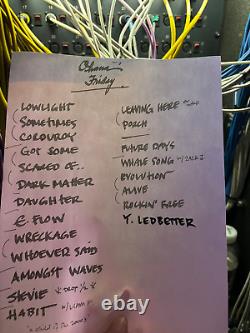 Ohana
Friday
LOWLIGHT
SOMETIMES
CORDUROY
GOT SOME
SCARED OF..
DARK MATTER
DAUGHTER
E. FLOW
WRECKAGE
WHOEVER SAID
AMONGST WAVES
STEVIE
HABIT
LEAVING HERE
PORCH
FUTURE DAYS
WHALE SONG W/
EVOLUTION
ALIVE
ROCKIN' FREE
Y. LEDBETTER